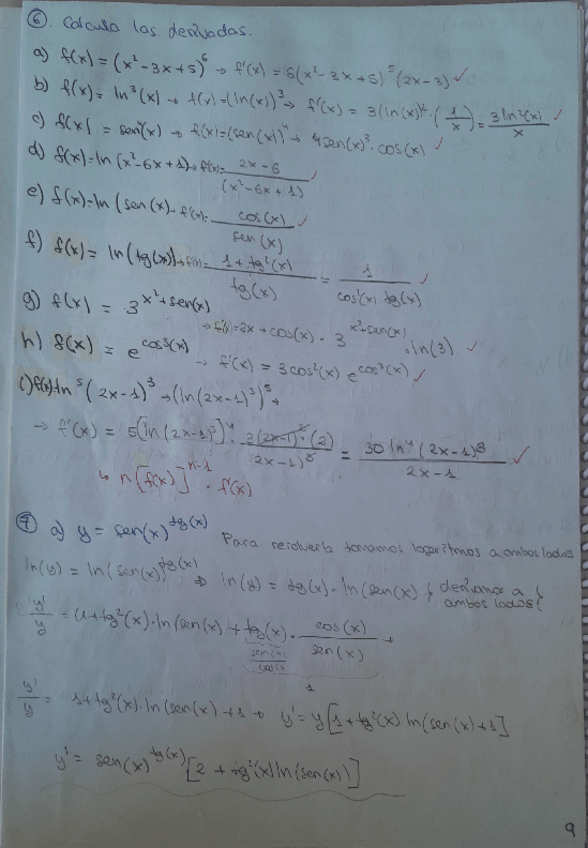 ⑥. Calcula las derivadas.
a) f(x) = (x²-3x+5)⁶ → f'(x) = 6(x²-3x+5)⁵(2x-3) ✓
b) f(x) = ln³(x) → f(x) = (ln(x))³ → f'(x) = 3(ln(x))²·(1/x) = 3ln²(x)/x ✓
c) f(x) = sen⁴(x) → f(x) = (sen(x))⁴ → 4sen(x)³·cos(x) ✓
d) f(x)=ln(x²-6x+1) → f'(x)= 2x-6/(x²-6x+1) ✓
e) f(x)=ln(sen(x) → f'(x)= cos(x)/sen(x) ✓
f) f(x) = ln(tg(x)) → f'(x) = 1+tg²(x)/tg(x) = 1/cos²(x)·tg(x) ✓
g) f(x) = 3^x²+sen(x)
→ f'(x)=2x+cos(x)·3^x²+sen(x)·ln(3). ✓
h) f(x) = e^cos³(x) → f'(x) = 3cos²(x) e^cos³(x) ✓
i) f(x)=ln⁵(2x-1)³ → (ln(2x-1)³)⁵ →
→ f'(x) = 5(ln(2x-1)³)⁴· 3(2x-1)²·(2)/(2x-1)³ = 30 ln⁴(2x-1)³/2x-1 ✓
↳ n[f(x)]^n-1 · f'(x)
⑦ a) y = sen(x)^tg(x)
Para resolverla tomamos logaritmos a ambos lados
ln(y) = ln(sen(x))^tg(x) ⇒ ln(y) = tg(x)·ln(sen(x) { derivamos a
ambos lados {
y'/y = (1+tg²(x)·ln(sen(x) + tg(x)· cos(x)/sen(x) →
sen(x)/cos(x)
1
y'/y = 1+tg²(x)·ln(sen(x) +1 → y' = y[1+tg²(x) ln(sen(x)+1]
y' = sen(x)^tg(x) [2 + tg²(x) ln(sen(x))]
9